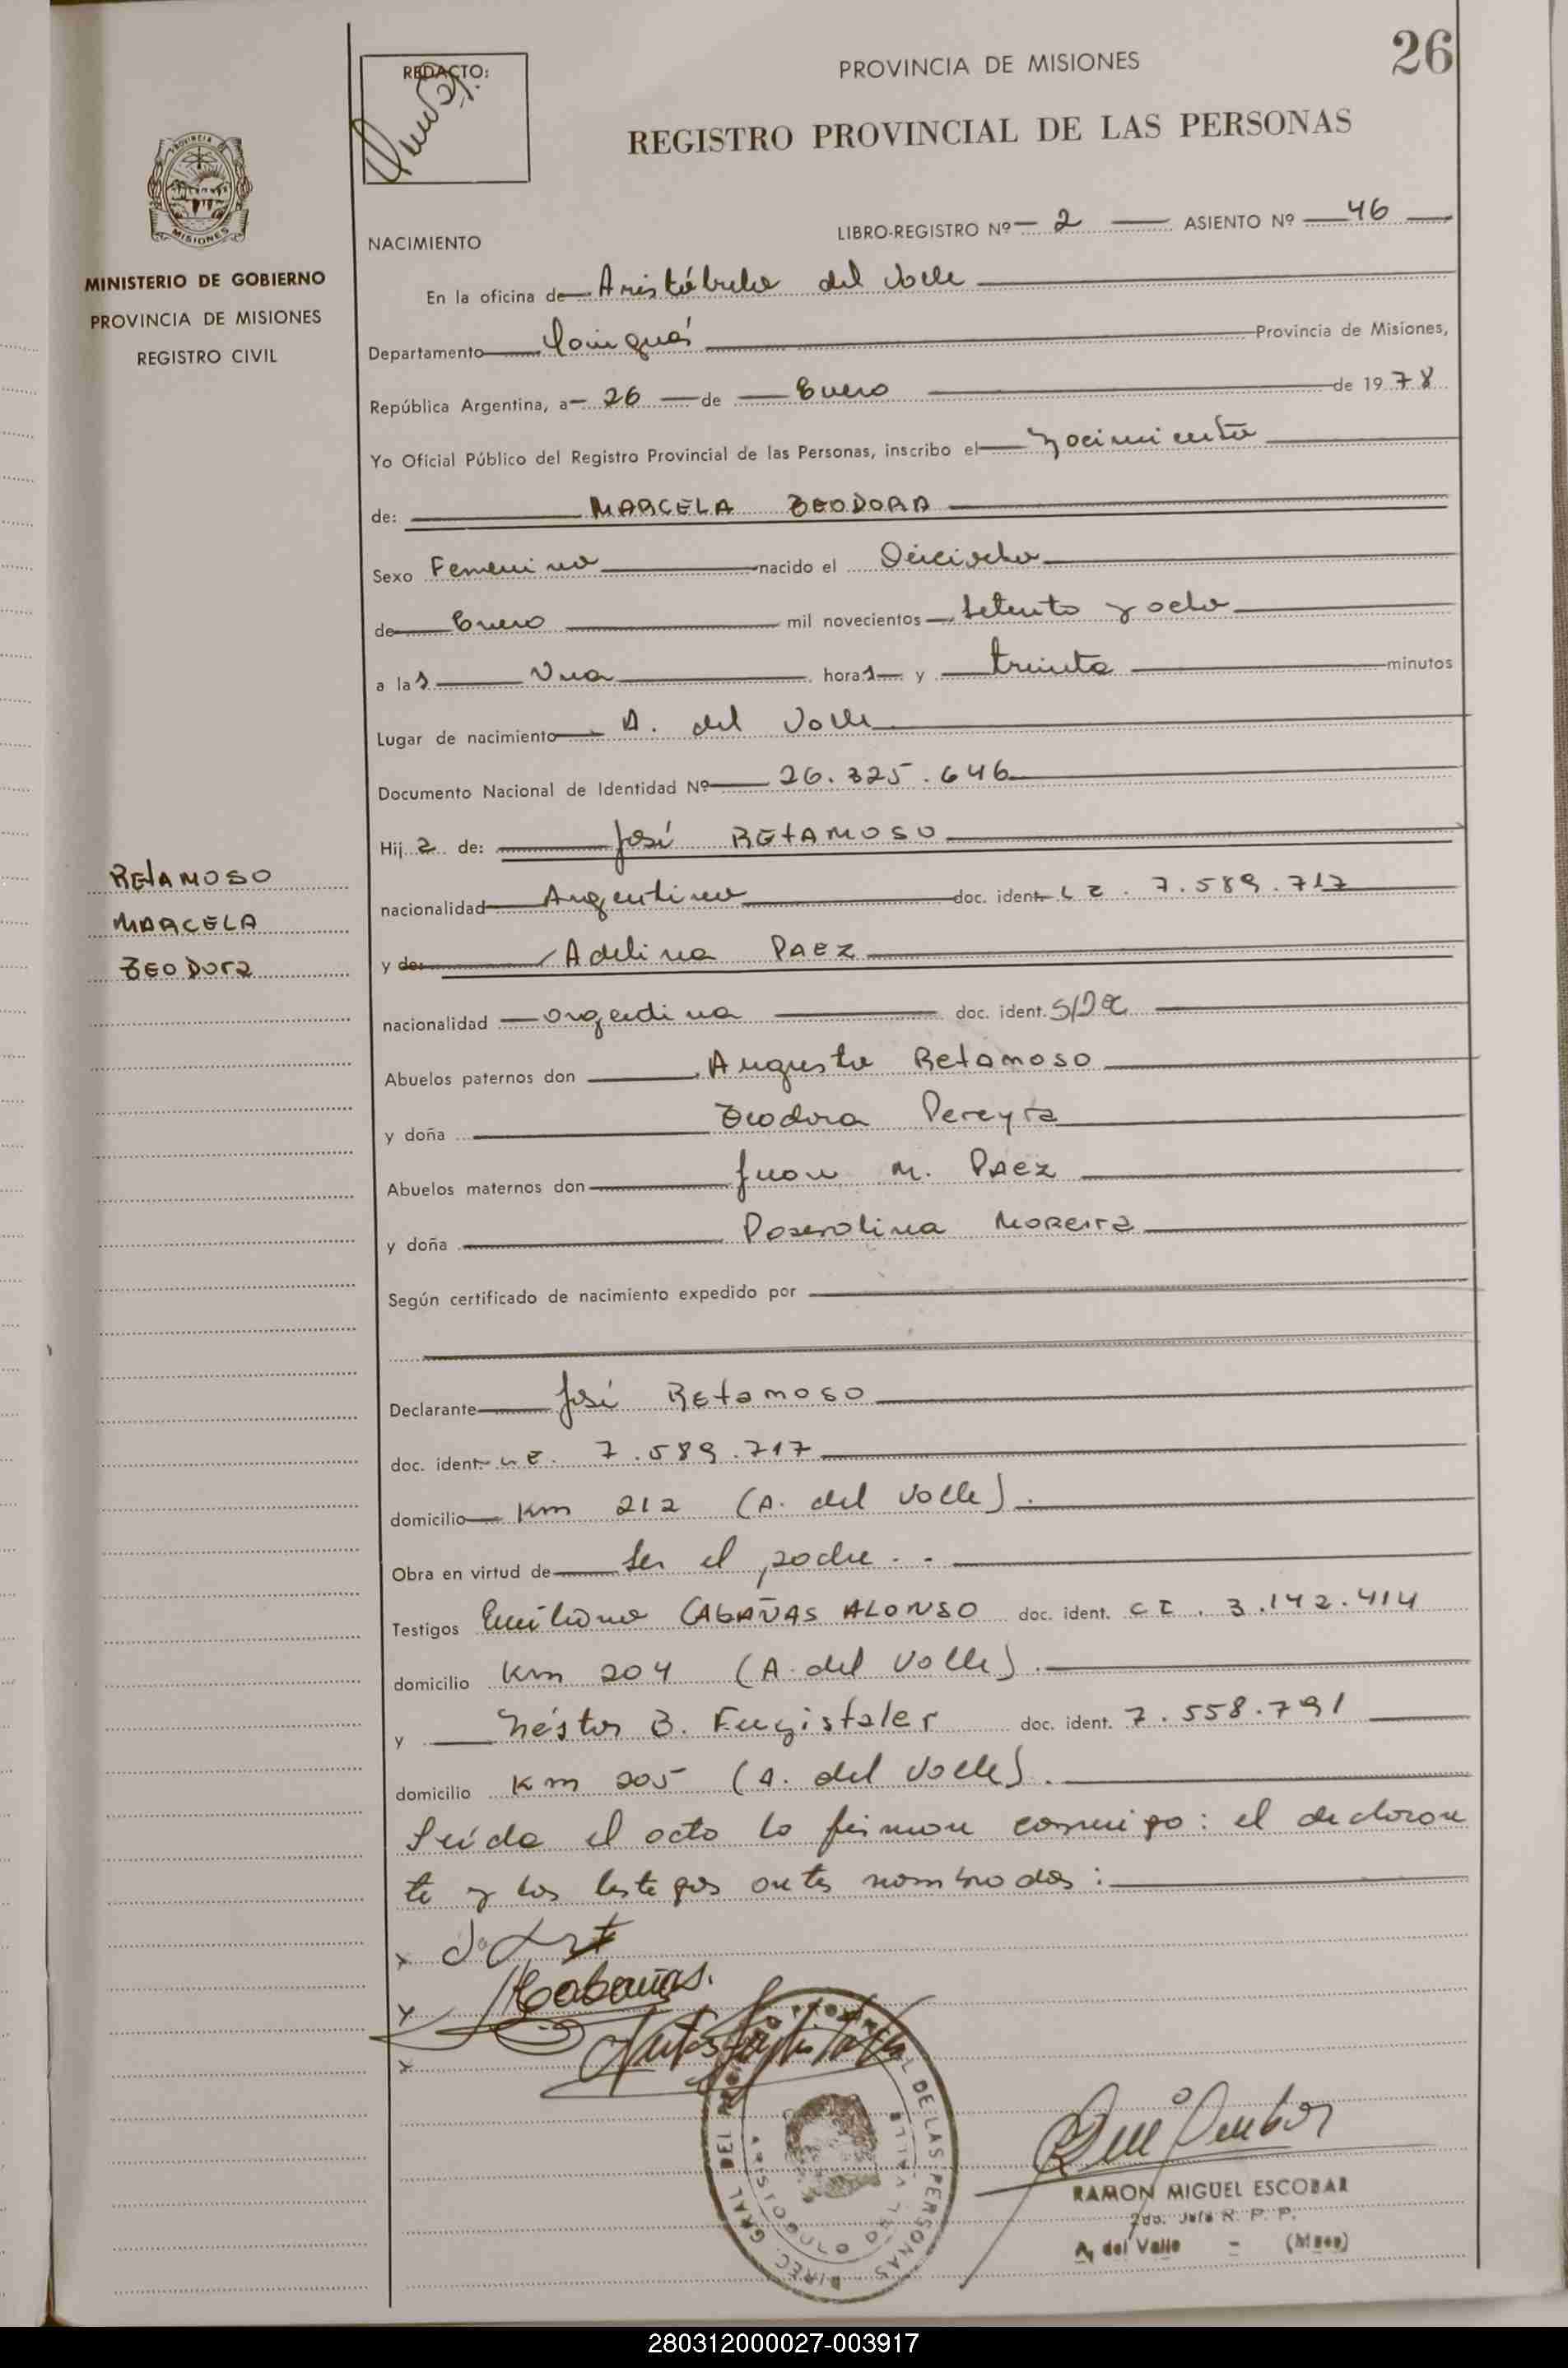 26
REDACTO:
PROVINCIA DE MISIONES
REGISTRO PROVINCIAL DE LAS PERSONAS
PROVINCIA
MISIONES
MINISTERIO DE GOBIERNO
PROVINCIA DE MISIONES
REGISTRO CIVIL
LIBRO-REGISTRO Nº 2 ASIENTO Nº 46
NACIMIENTO
En la oficina de Aristóbulo del Valle
Departamento Cainguás Provincia de Misiones,
República Argentina, a 26 de Enero de 1978
Yo Oficial Público del Registro Provincial de las Personas, inscribo el nacimiento
de: MARCELA TEODORA
Sexo Femenino nacido el Dieciocho
de Enero mil novecientos setenta y ocho
a las Una horas y treinta minutos
Lugar de nacimiento A. del Valle
Documento Nacional de Identidad Nº 26.325.646
Hija de: José RETAMOSO
RETAMOSO
MARCELA
TEODORA
nacionalidad Argentino doc. ident. L E. 7.589.717
y de: Adelina PAEZ
nacionalidad argentina doc. ident.
Abuelos paternos don Augusto Retamoso
y doña Teodora Pereyra
Abuelos maternos don Juan M. PAEZ
y doña MOREIRA
Según certificado de nacimiento expedido por
Declarante José RETAMOSO
doc. ident. L E. 7.589.717
domicilio Km 212 (A. del Valle).
Obra en virtud de ser el padre.-
Testigos Emiliano CABAÑAS ALONSO doc. ident. C I. 3.142.414
domicilio Km 204 (A. del Valle).
y Néstor B. doc. ident. 7.558.791
domicilio Km 205 (A. del Valle).
Leída el acta la firman conmigo: el declaran
te y los testigos antes nombrados:
Cabañas.
DIREC. GRAL. DEL REGISTRO PROVINCIAL DE LAS PERSONAS
ARISTOBULO DEL VALLE
RAMON MIGUEL ESCOBAR
2do. Jefe R. P. P.
A. del Valle - (Mnes)
280312000027-003917